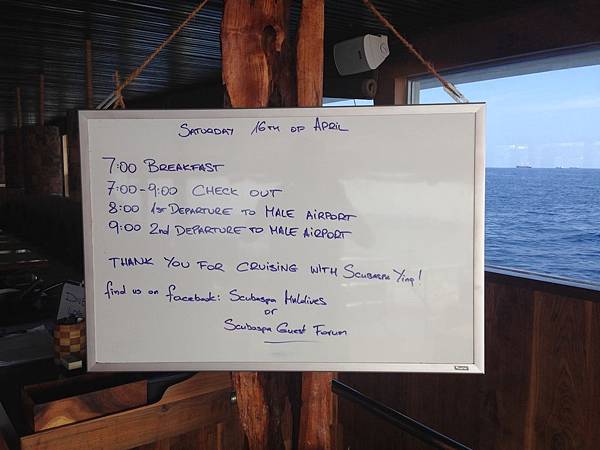 SATURDAY 16TH OF APRIL
7:00 BREAKFAST
7:00-9:00 CHECK OUT
8:00 1st DEPARTURE TO MALE AIRPORT
9:00 2nd DEPARTURE TO MALE AIRPORT
THANK YOU FOR CRUISING WITH SCUBASPA Ying!
find us on facebook: Scubaspa Maldives
or
Scubaspa Guest Forum